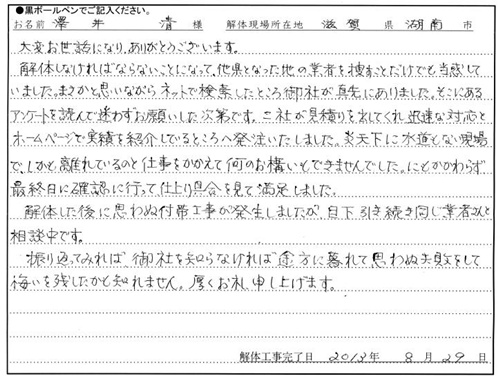 ●黒ボールペンでご記入ください。
お名前 澤井 清 様 解体現場所在地 滋賀 県 湖南 市
大変お世話になり、ありがとうございます。
解体しなければならないことになって、他県となった地の業者を捜すことだけでも当惑して
いました。まさかと思いながらネットで検索したところ御社が真先にありました。そこにある
アンケートを読んで迷わずお願いした次第です。三社が見積りを出してくれ迅速な対応と
ホームページで実績を紹介しているところへ発注いたしました。炎天下に水道もない現場
で、しかも離れているのと仕事をかかえて何のお構いもできませんでした。にもかかわらず
最終日に確認に行って仕上り具合を見て満足しました。
解体した後に思わぬ付帯工事が発生しましたが、目下引き続き同じ業者さんと
相談中です。
振り返ってみれば、御社を知らなければ途方に暮れて思わぬ失敗をして
悔いを残したかも知れません。厚くお礼申し上げます。
解体工事完了日 2013年 8月 29日